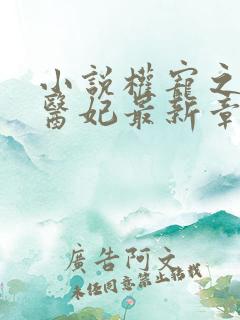 小說權寵之
醫妃最新章
廣告阿文
未任同意禁止轉載